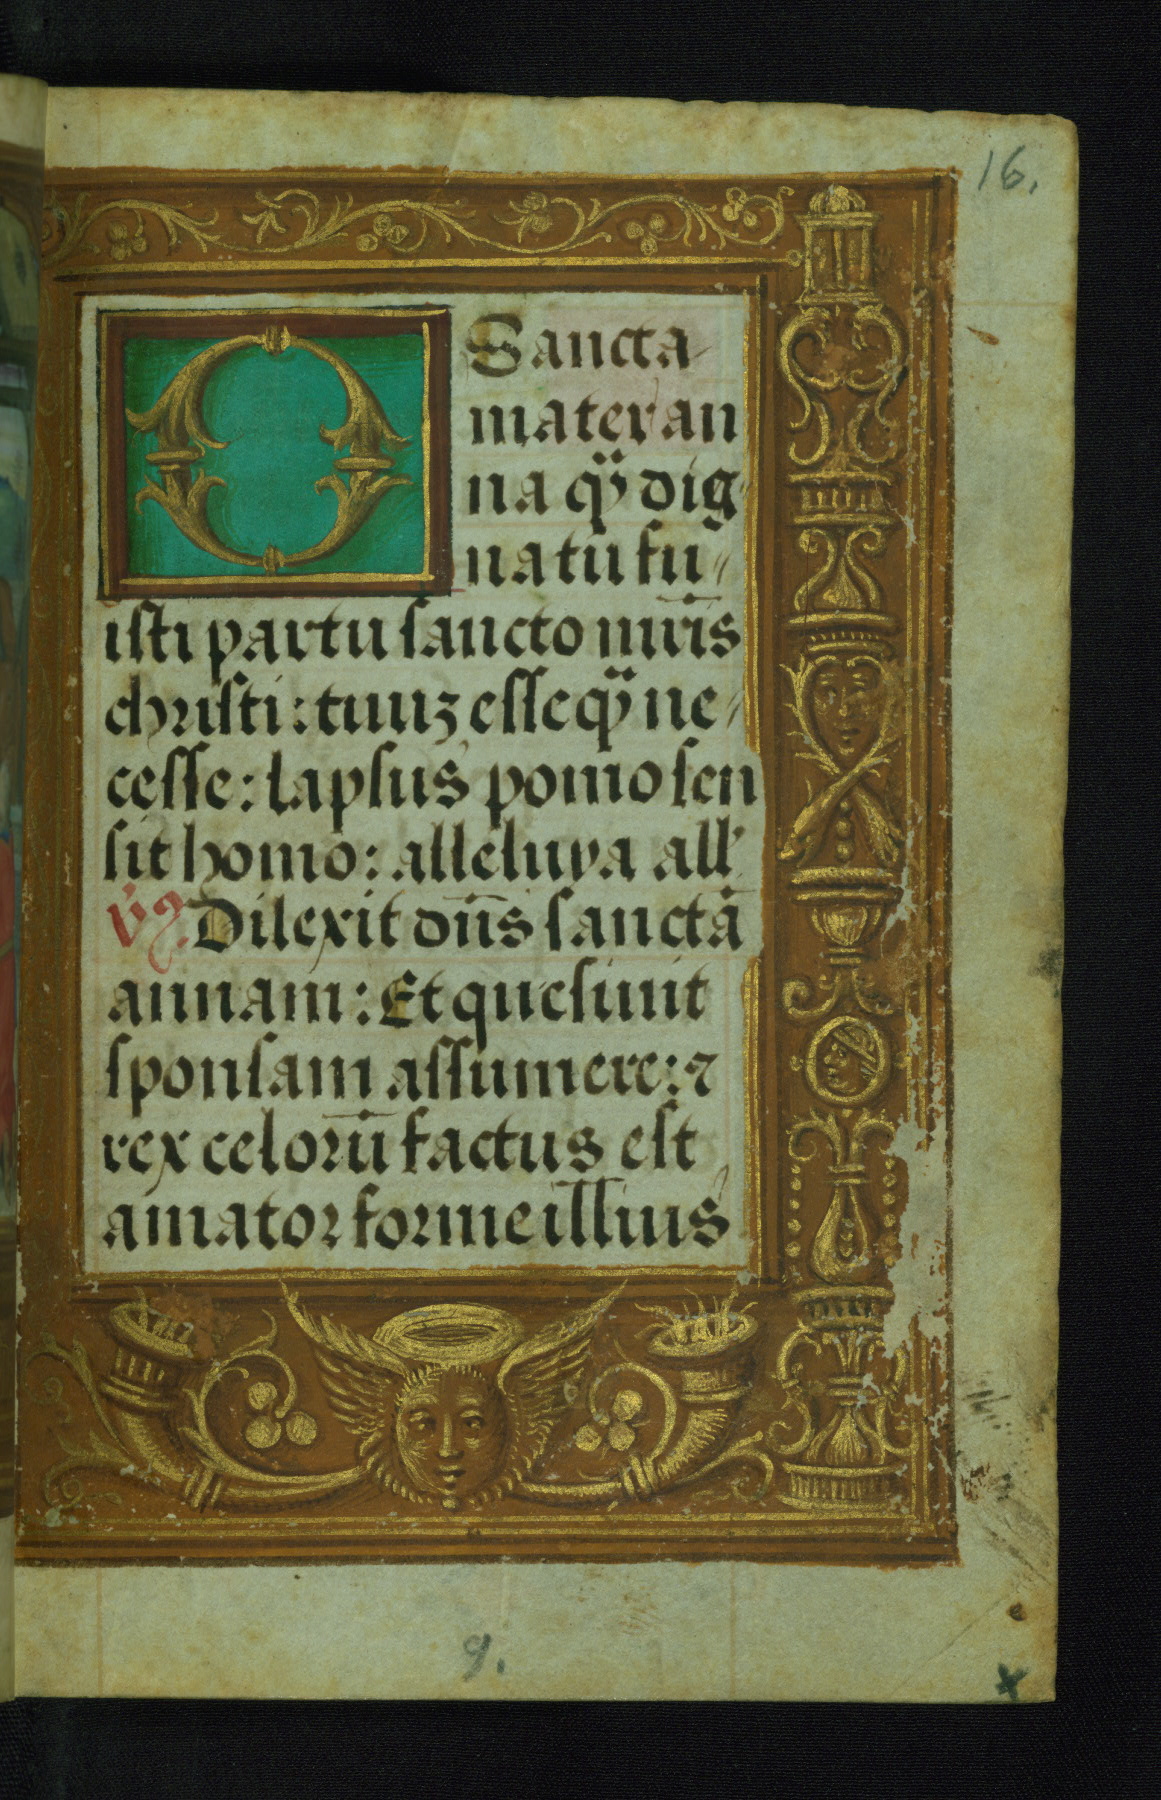 16.
O Sancta-
mater an
na qȝ dig
natū fu-
isti partu sancto mr̄is
christi: tuuȝ esse qȝ ne-
cesse: lapsus pomo sen
sit homo: alleluya all'
v̓ꝫ. Dilexit dn̄s sanctā
annam: Et que siuit
sponsam assumere: ⁊
rex celorū factus est
amator forme illius
9.
x